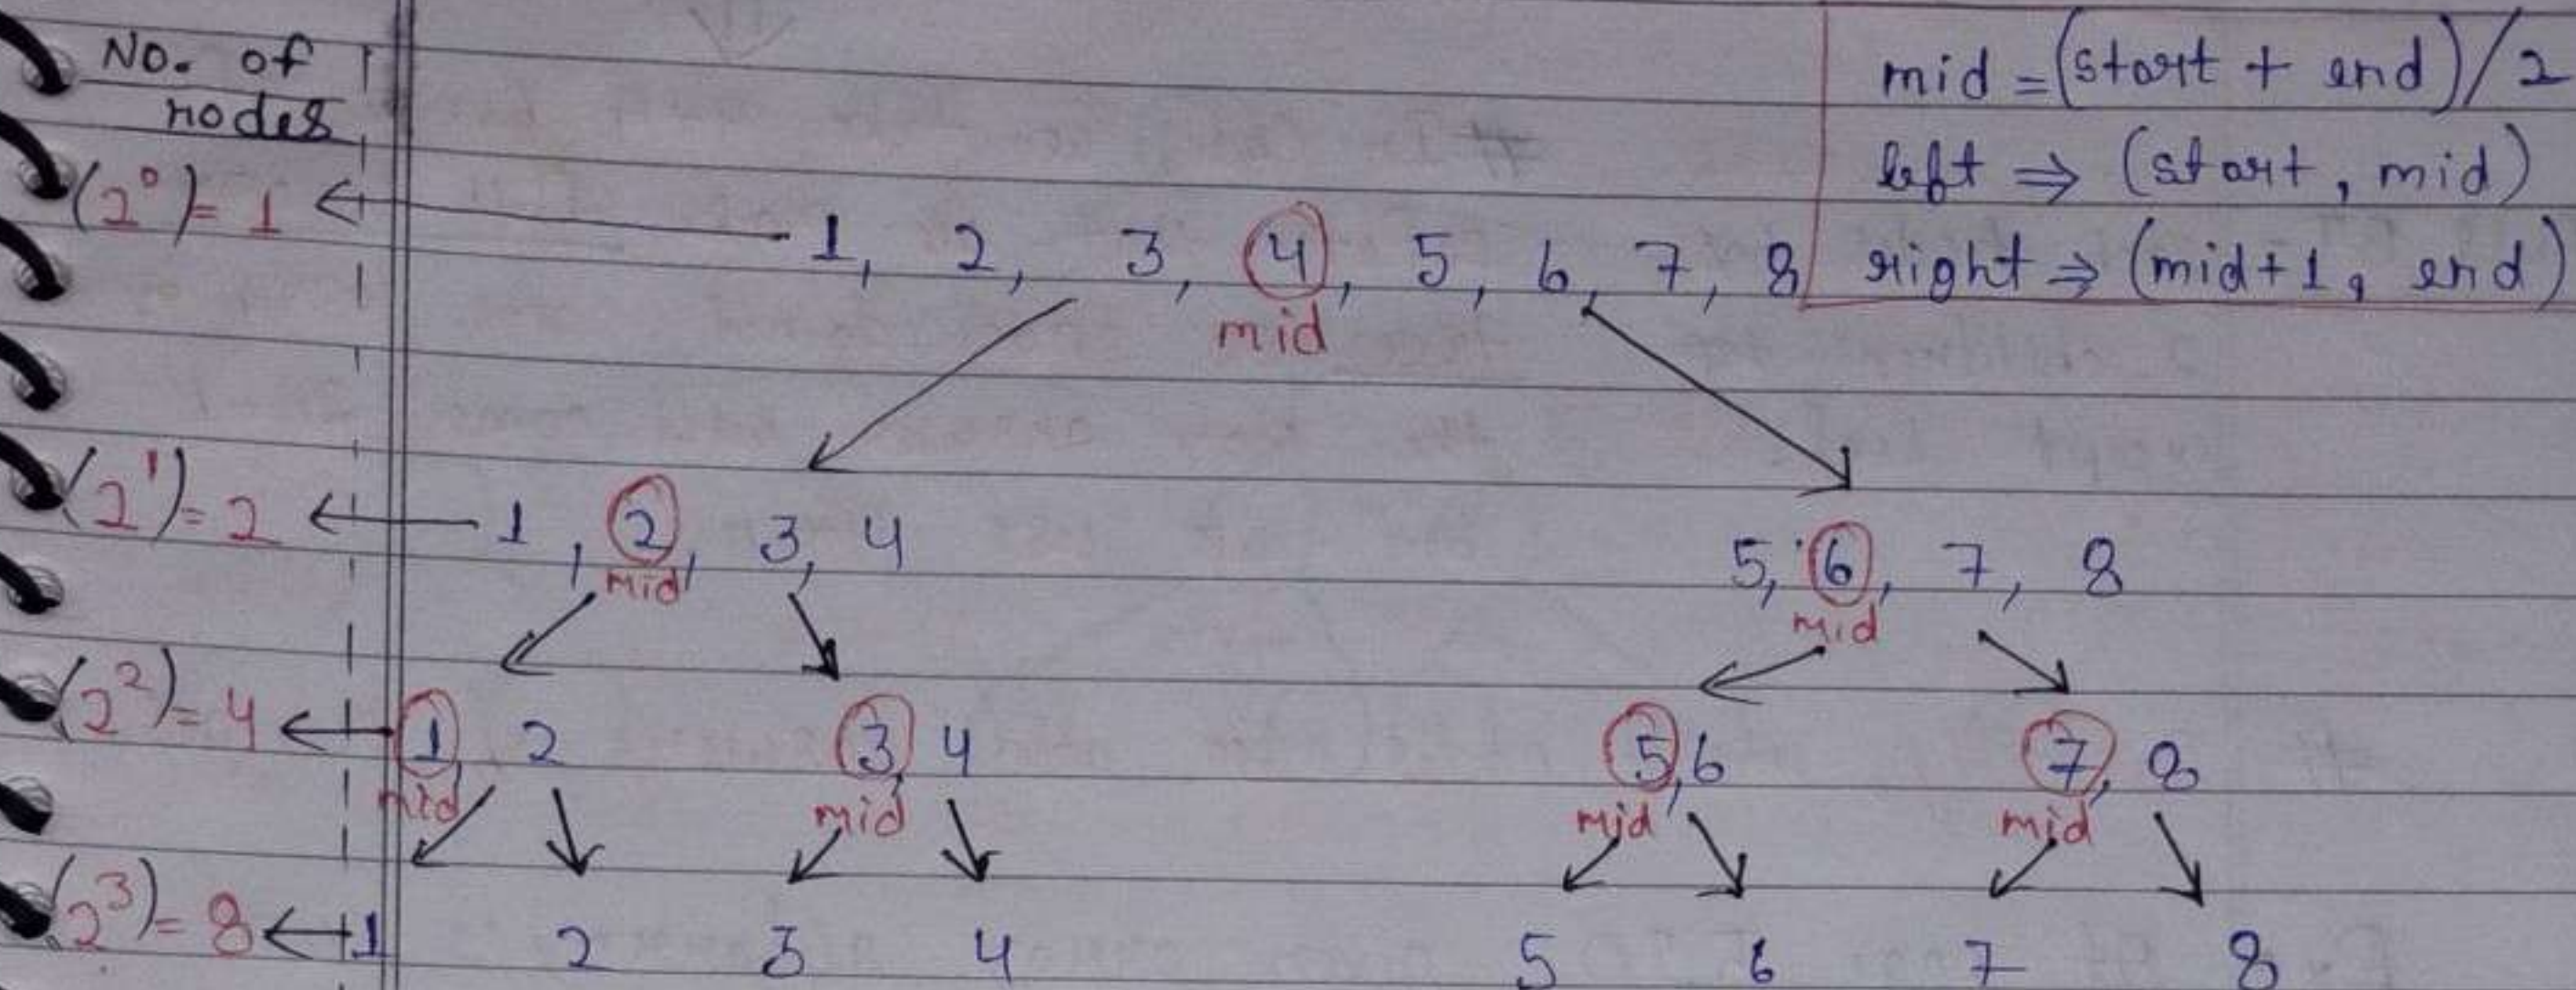 No. of
nodes
mid = (start + end)/2
left ⇒ (start, mid)
right ⇒ (mid+1, end)
(2⁰) = 1 ← 1, 2, 3, 4, 5, 6, 7, 8
mid
(2¹) = 2 ← 1, 2, 3, 4 5, 6, 7, 8
mid mid
(2²) = 4 ← 1, 2 3, 4 5, 6 7, 8
mid mid mid mid
(2³) = 8 ← 1 2 3 4 5 6 7 8